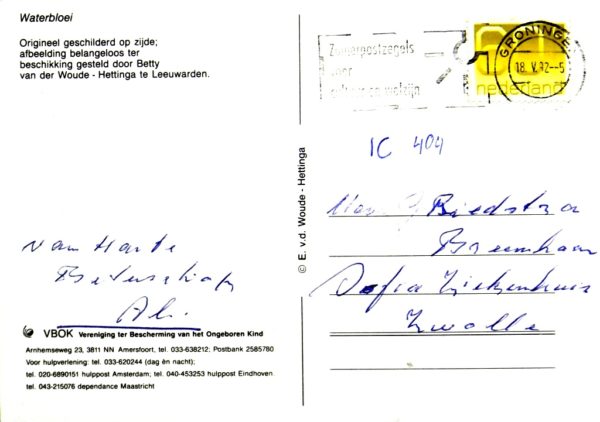 Waterbloei
Origineel geschilderd op zijde;
afbeelding belangeloos ter
beschikking gesteld door Betty
van der Woude - Hettinga te Leeuwarden.
Zomerpostzegels
voor
welzijn
GRONINGEN
18.V.92--5
nederland
IC 404
© E. v.d. Woude - Hettinga
Biedstra
Sofia Ziekenhuis
Zwolle
van Harte
Beterschap
VBOK Vereniging ter Bescherming van het Ongeboren Kind
Arnhemseweg 23, 3811 NN Amersfoort, tel. 033-638212; Postbank 2585780
Voor hulpverlening: tel. 033-620244 (dag èn nacht);
tel. 020-6890151 hulppost Amsterdam; tel. 040-453253 hulppost Eindhoven
tel. 043-215076 dependance Maastricht